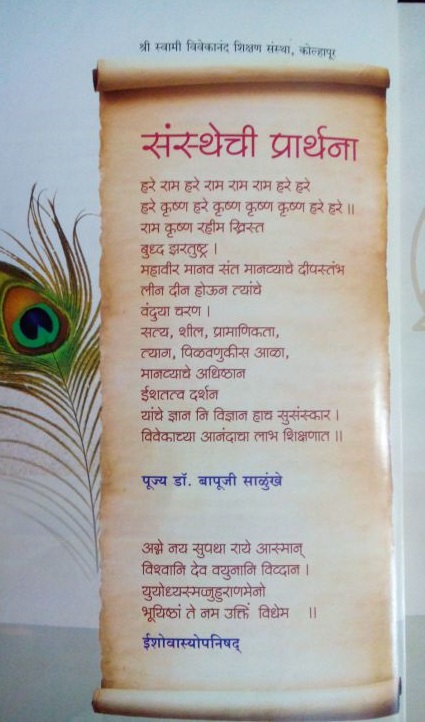 श्री स्वामी विवेकानंद शिक्षण संस्था, कोल्हापूर
संस्थेची प्रार्थना
हरे राम हरे राम राम राम हरे हरे
हरे कृष्ण हरे कृष्ण कृष्ण कृष्ण हरे हरे ॥
राम कृष्ण रहीम ख्रिस्त
बुध्द झरतुष्ट्र ।
महावीर मानव संत मानव्याचे दीपस्तंभ
लीन दीन होऊन त्यांचे
वंदुया चरण ।
सत्य, शील, प्रामाणिकता,
त्याग, पिळवणुकीस आळा,
मानव्याचे अधिष्ठान
ईशतत्व दर्शन
यांचे ज्ञान नि विज्ञान हाच सुसंस्कार ।
विवेकाच्या आनंदाचा लाभ शिक्षणात ॥
पूज्य डॉ. बापूजी साळुंखे
अग्ने नय सुपथा राये आस्मान्
विश्वानि देव वयुनानि विव्दान ।
युयोध्यस्मज्जुहुराणमेनो
भूयिष्ठां ते नम उक्तिं विधेम ॥
ईशोवास्योपनिषद्